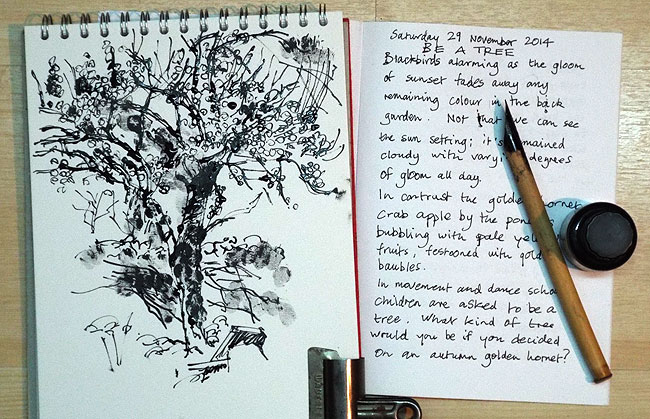 Saturday 29 November 2014
BE A TREE
Blackbirds alarming as the gloom
of sunset fades away any
remaining colour in the back
garden. Not that we can see
the sun setting; it's remained
cloudy with varying degrees
of gloom all day.
In contrast the golden hornet
Crab apple by the pond is
bubbling with pale yellow
fruits, festooned with gold
baubles.
In movement and dance school
children are asked to be a
tree. What kind of tree
would you be if you decided
on an autumn golden hornet?